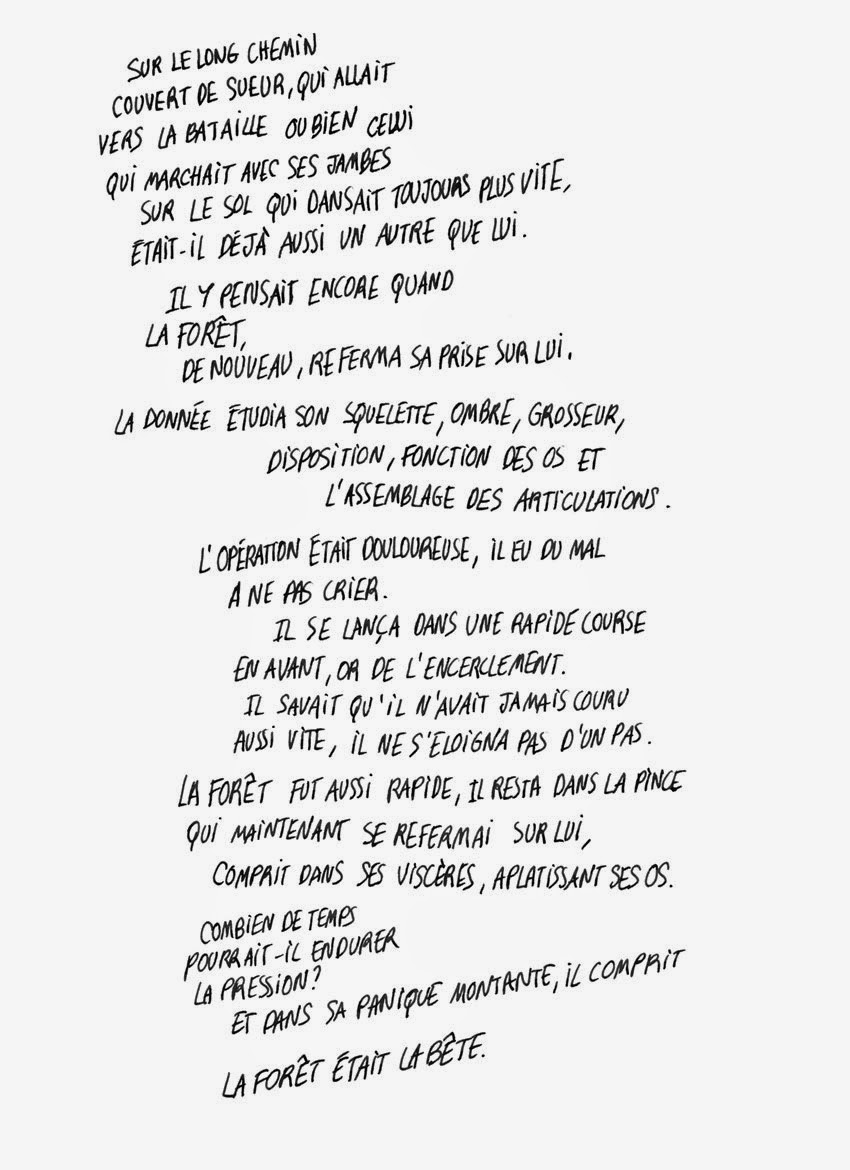 SUR LE LONG CHEMIN
COUVERT DE SUEUR, QUI ALLAIT
VERS LA BATAILLE OU BIEN CELUI
QUI MARCHAIT AVEC SES JAMBES
SUR LE SOL QUI DANSAIT TOUJOURS PLUS VITE,
ÉTAIT-IL DÉJÀ AUSSI UN AUTRE QUE LUI.
IL Y PENSAIT ENCORE QUAND
LA FORÊT,
DE NOUVEAU, REFERMA SA PRISE SUR LUI.
LA DONNÉE ÉTUDIA SON SQUELETTE, OMBRE, GROSSEUR,
DISPOSITION, FONCTION DES OS ET
L'ASSEMBLAGE DES ARTICULATIONS.
L'OPÉRATION ÉTAIT DOULOUREUSE, IL EU DU MAL
A NE PAS CRIER.
IL SE LANÇA DANS UNE RAPIDE COURSE
EN AVANT, OR DE L'ENCERCLEMENT.
IL SAVAIT QU'IL N'AVAIT JAMAIS COURU
AUSSI VITE, IL NE S'ELOIGNA PAS D'UN PAS.
LA FORÊT FUT AUSSI RAPIDE, IL RESTA DANS LA PINCE
QUI MAINTENANT SE REFERMAI SUR LUI,
COMPRIT DANS SES VISCÈRES, APLATISSANT SES OS.
COMBIEN DE TEMPS
POURRAIT-IL ENDURER
LA PRESSION?
ET DANS SA PANIQUE MONTANTE, IL COMPRIT
LA FORÊT ÉTAIT LA BÊTE.